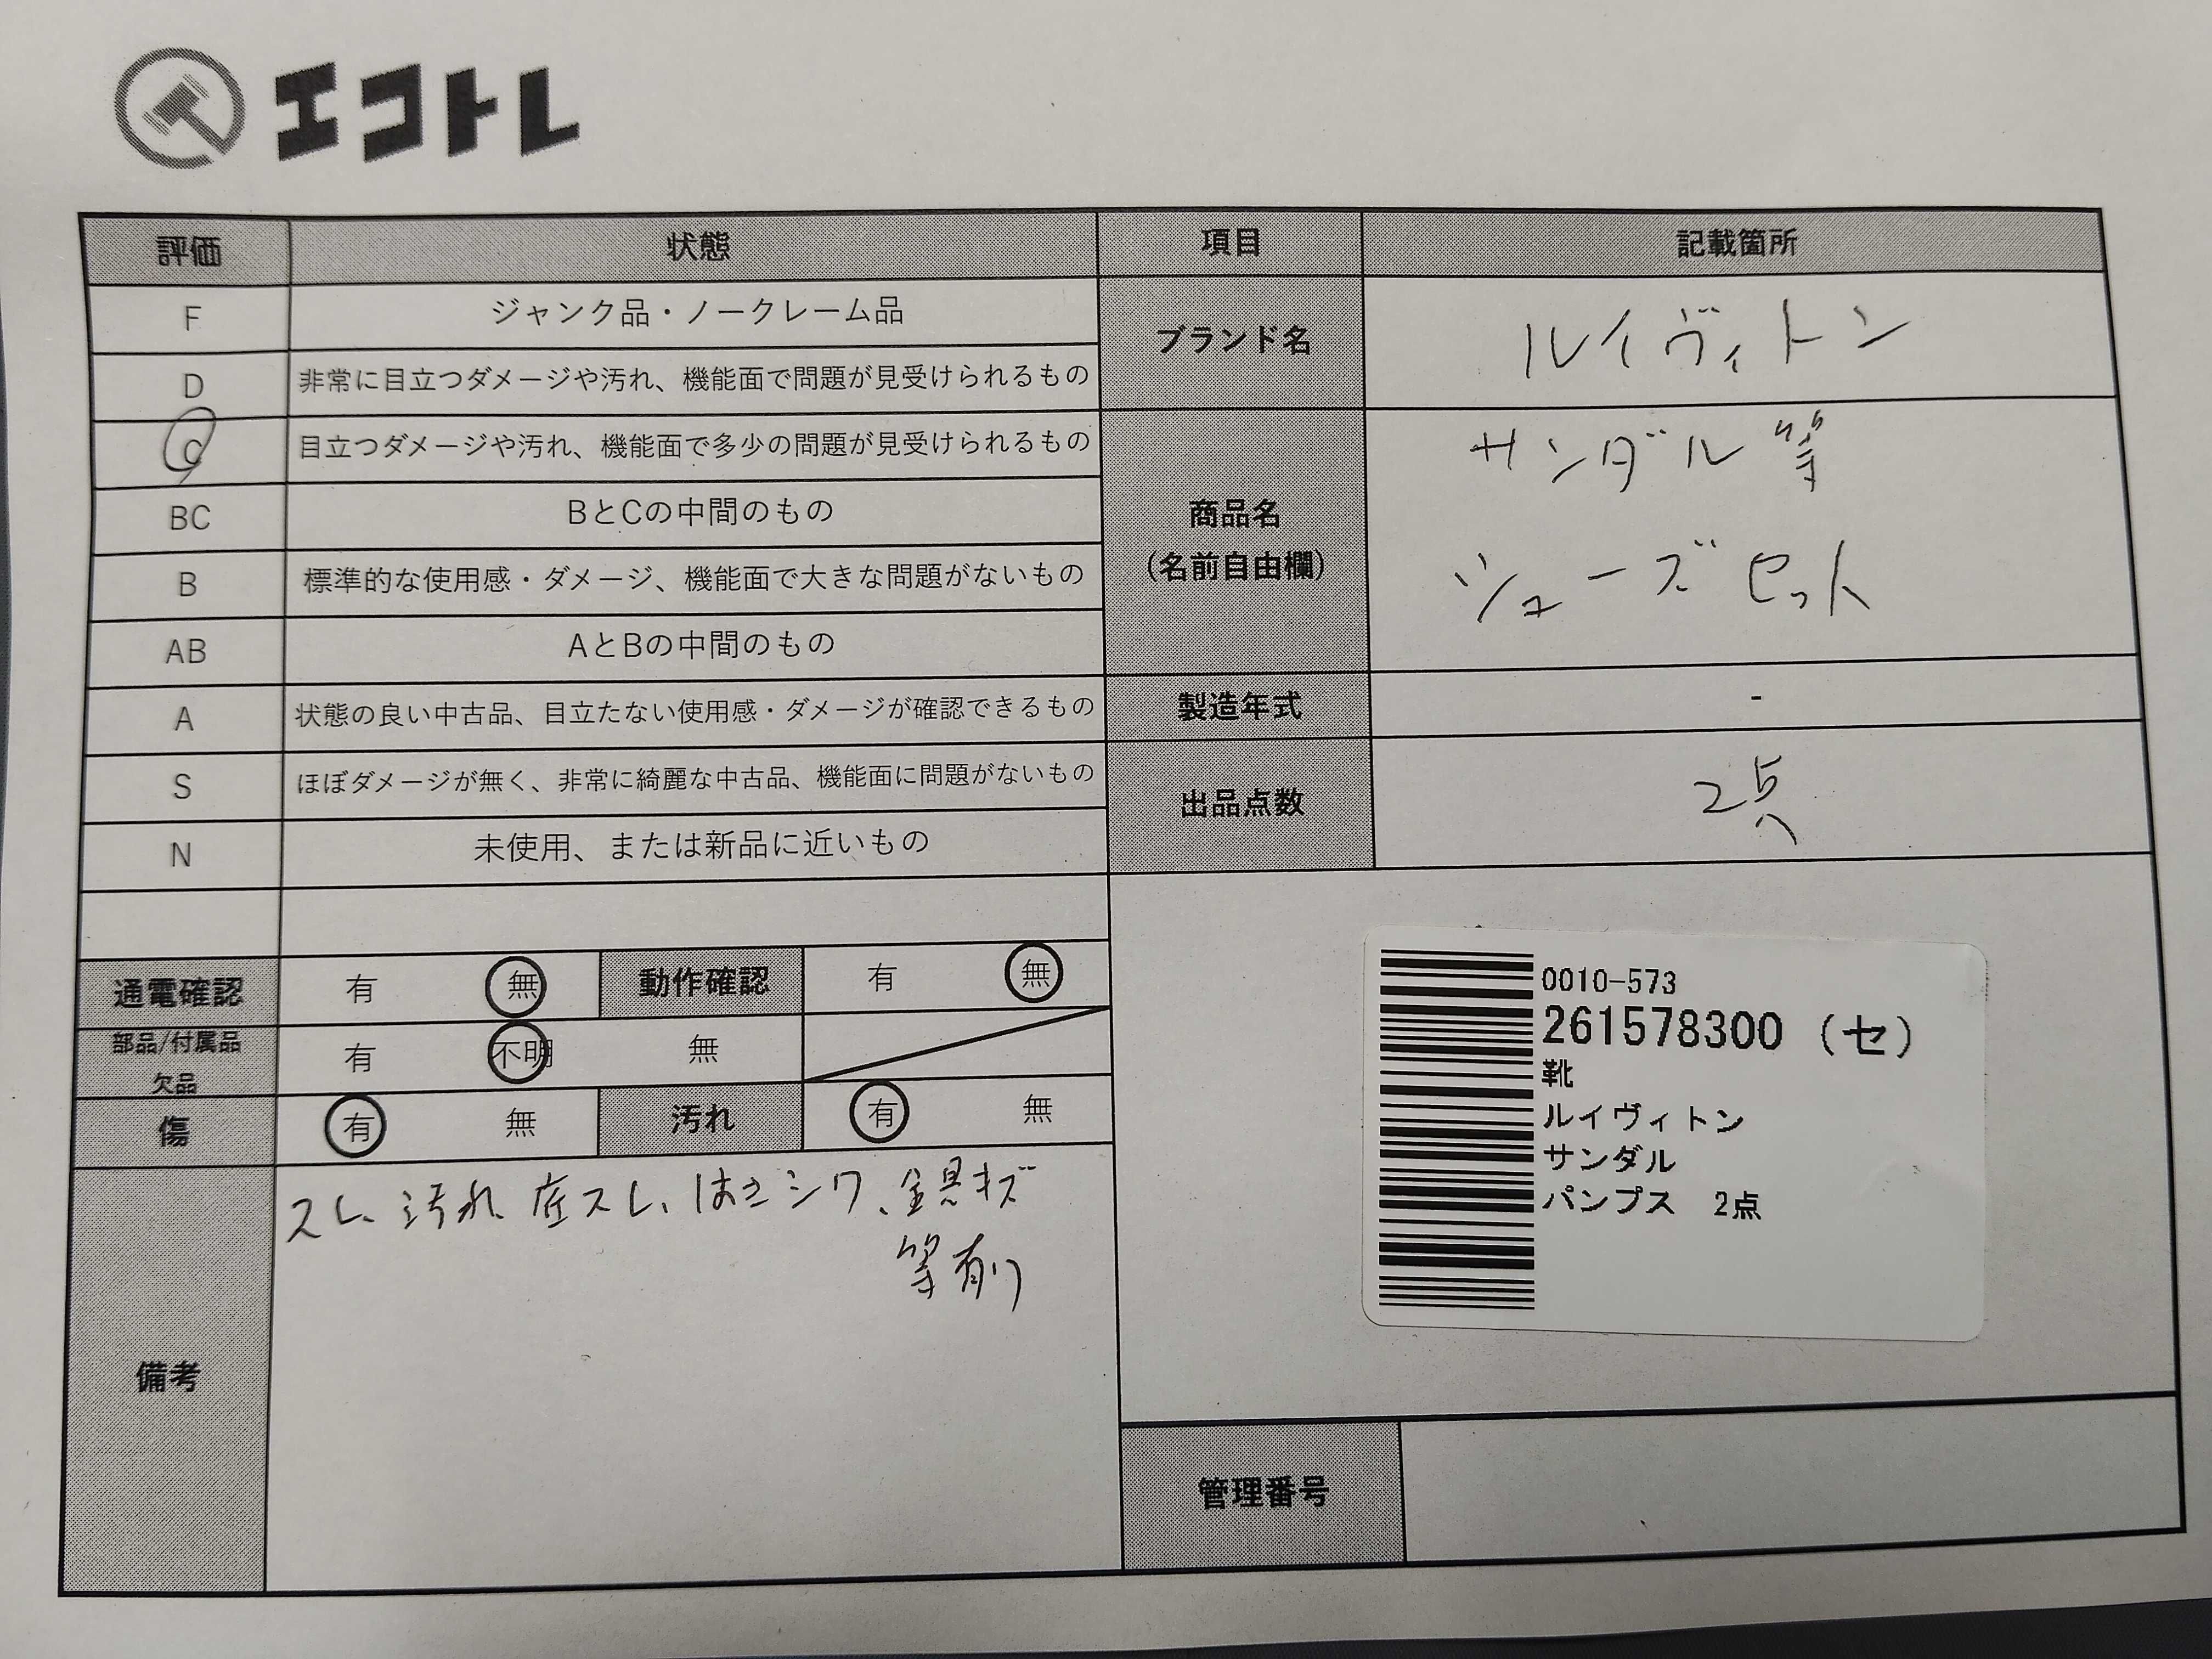 エコトレ
評価 状態 項目 記載箇所
F ジャンク品・ノークレーム品
D 非常に目立つダメージや汚れ、機能面で問題が見受けられるもの
C 目立つダメージや汚れ、機能面で多少の問題が見受けられるもの
BC BとCの中間のもの
B 標準的な使用感・ダメージ、機能面で大きな問題がないもの
AB AとBの中間のもの
A 状態の良い中古品、目立たない使用感・ダメージが確認できるもの
S ほぼダメージが無く、非常に綺麗な中古品、機能面に問題がないもの
N 未使用、または新品に近いもの
ブランド名 ルイヴィトン
商品名
(名前自由欄)
サンダル等
シューズセット
製造年式 -
出品点数 2点
通電確認 有 無 動作確認 有 無
部品/付属品
欠品
有 不明 無
傷 有 無 汚れ 有 無
備考
スレ、汚れ、底スレ、はきシワ、金具キズ
等有り
0010-573
261578300 (セ)
靴
ルイヴィトン
サンダル
パンプス 2点
管理番号